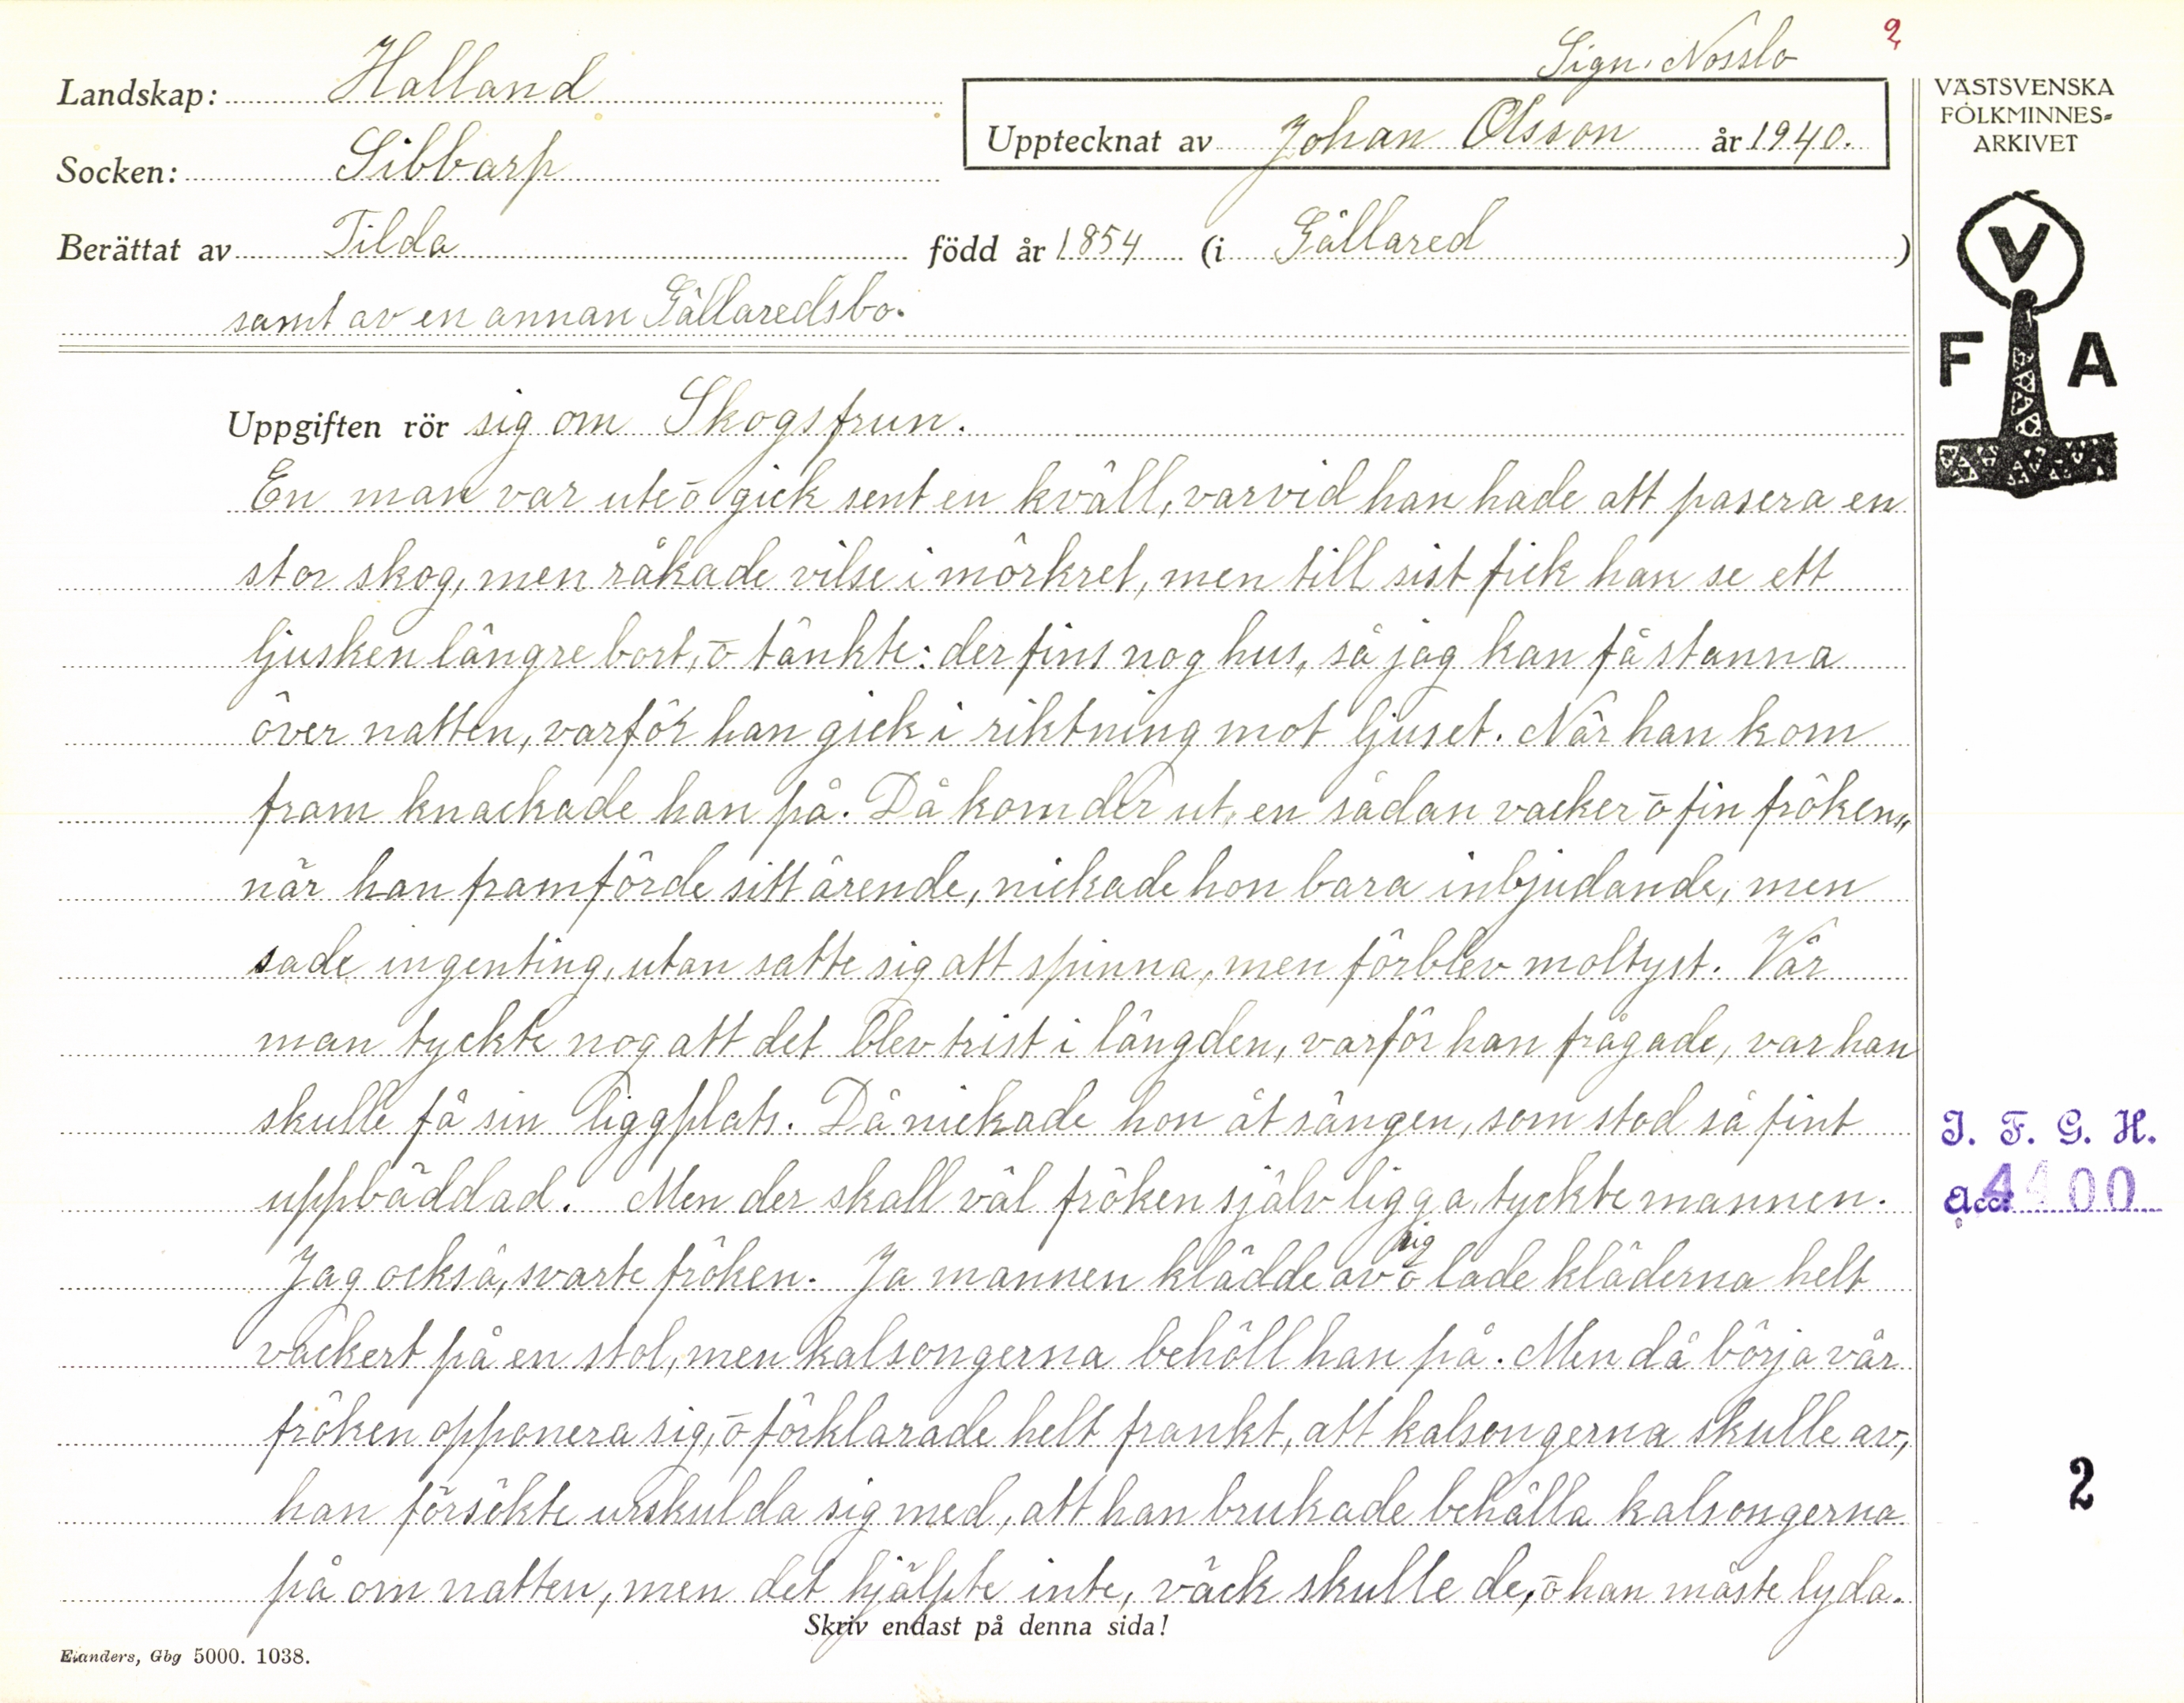 Sign. Nosslo
2
Landskap: Halland
Upptecknat av Johan Olsson år 1940.
Socken: Sibbarp
Berättat av Tilda född år 1854 (i Gällared)
samt av en annan Gällaredsbo.
VÄSTSVENSKA
FOLKMINNES-
ARKIVET
V
F A
Uppgiften rör sig om Skogsfrun.
En man var ute ō gick sent en kväll, varvid han hade att pasera en
stor skog, men råkade vilse i mörkret, men till sist fick han se ett
ljusken längre bort, ō tänkte: der fins nog hus, så jag kan få stanna
över natten, varför han gick i riktning mot ljuset. När han kom
fram knackade han på. Då kom der ut, en sådan vacker ō fin fröken,,
när han framförde sitt ärende, nickade hon bara inbjudande, men
sade ingenting, utan satte sig att spinna, men förblev moltyst. Vår
man tyckte nog att det blev trist i längden, varför han frågade, var han
skulle få sin liggplats. Då nickade hon åt sängen, som stod så fint
uppbäddad. Men der skall väl fröken själv ligga, tyckte mannen.
Jag också, svarte fröken. Ja mannen klädde av sig ō lade kläderna helt
vackert på en stol, men kalsongerna behöll han på. Men då börja vår
fröken opponera sig, ō förklarade helt frankt, att kalsongerna skulle av,
han försökte urskulda sig med, att han brukade behålla kalsongerna
på om natten, men det hjälpte inte, väck skulle de, ō han måste lyda.
Skriv endast på denna sida!
Elanders, Gbg 5000. 1038.
I. F. G. H.
Acc. 4400
2